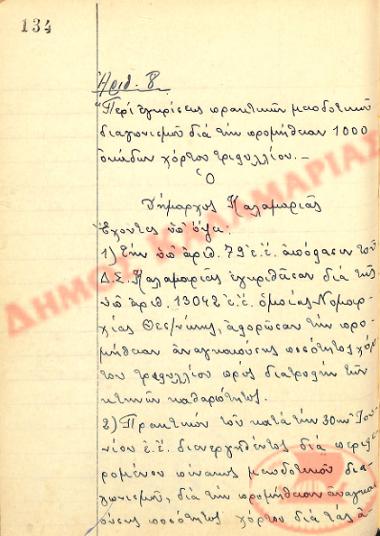 134
Ἀριθ. 8
"Περί ἐγκρίσεως πρακτικοῦ μειοδοτικοῦ
διαγωνισμοῦ διά τήν προμήθειαν 1000
ὀκάδων χόρτου τριφυλλίου. –
Ὁ
Δήμαρχος Καλαμαριᾶς
Ἔχοντες ὑπ' ὄψει:
1) Τήν ὑπ' ἀριθ. 79 ἐ.ἔ. ἀπόφασιν τοῦ
Δ.Σ. Καλαμαριᾶς ἐγκριθεῖσαν διά τῆς
ὑπ' ἀριθ. 13042 ἐ.ἔ. ὁμοίας Νομαρ-
χίας Θεσ/νίκης, ἀφορῶσαν τήν προ-
μήθειαν ἀναγκαιούσης ποσότητος χόρ
του τριφυλλίου πρός διατροφήν τῶν
κτηνῶν καθαριότητος.
2) Πρακτικόν τοῦ κατά τήν 30ην Ἰου-
νίου ἐ.ἔ. διενεργηθέντος διά περιφε
ρομένου πίνακος μειοδοτικοῦ δια-
γωνισμοῦ, διά τήν προμήθειαν ἀναγκαι
ούσης ποσότητος χόρτου διά τάς ἀ-
ΔΗΜΟΣ ΚΑΛΑΜΑΡΙΑΣ